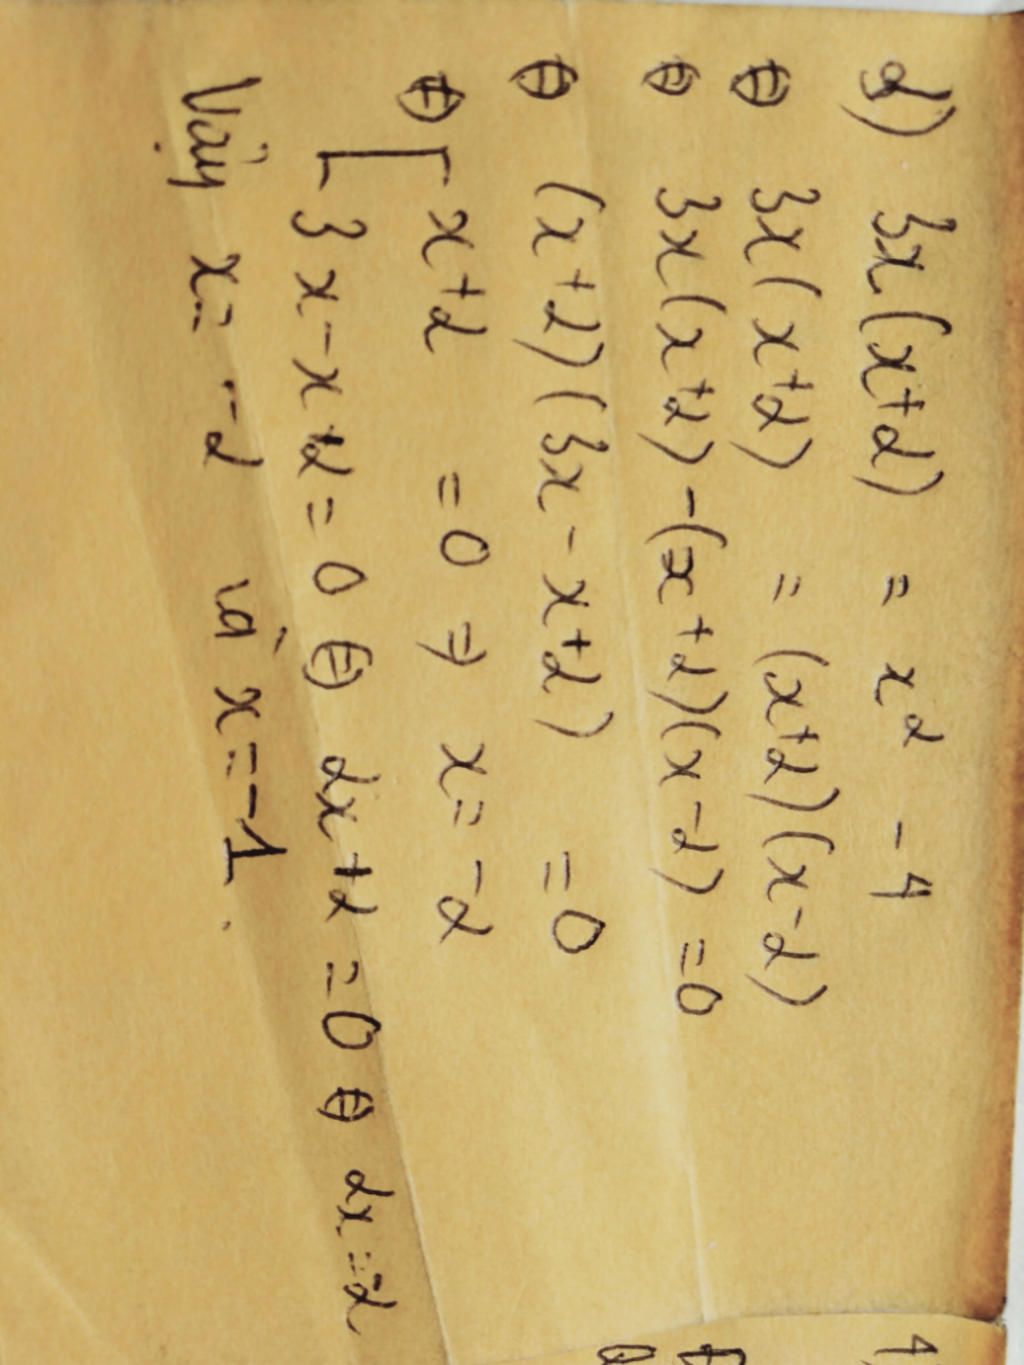 d) 3x(x+2) = x² - 4
⇔ 3x(x+2) = (x+2)(x-2)
⇔ 3x(x+2) - (x+2)(x-2) = 0
⇔ (x+2)(3x - x+2) = 0
⇔ [ x+2 = 0 ⇒ x = -2
3x - x+2 = 0 ⇔ 2x+2 = 0 ⇔ 2x = -2
Vậy x = -2 và x = -1.